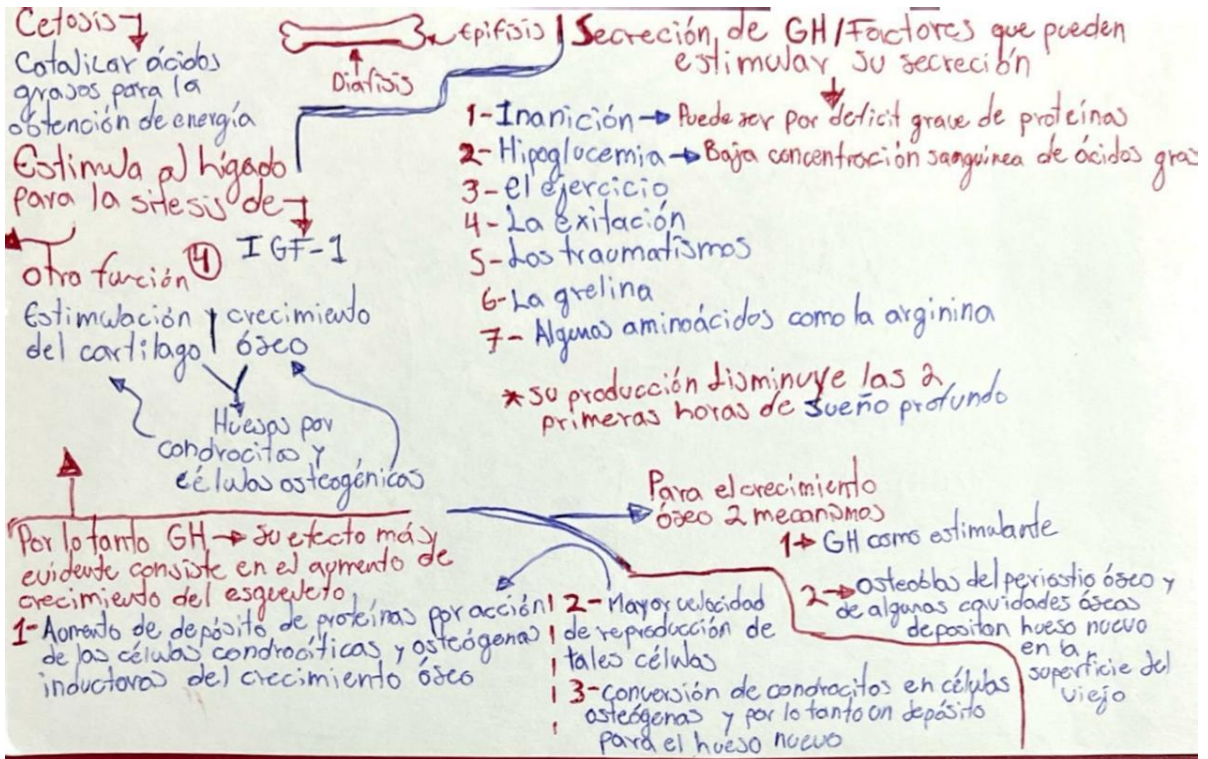 Cetosis
Catalicar ácidos
grasos para la
obtención de energía
Estimula al hígado
para la sítesis de
IGF-1
otra función 4
Estimulación y crecimiento
del cartilago óseo
Huesos por
condrocitos y
células osteogénicas
Epifisis
Diafisis
Secreción de GH/Factores que pueden
estimular su secreción
1- Inanición → Puede ser por deficit grave de proteínas
2- Hipoglucemia → Baja concentración sanguinea de ácidos gras
3- el ejercicio
4- La exitación
5- Los traumatismos
6- La grelina
7- Algunas aminoácidos como la arginina
* su producción disminuye las 2
primeras horas de sueño profundo
Por lo tanto GH → su efecto más
evidente consiste en el aumento de
crecimiento del esqueleto
1- Aomento de depósito de proteínas por acción
de las células condrocíticas y osteógenas
inductoras del crecimiento óseo
2- Mayor velocidad
de reproducción de
tales células
3- conversión de condrocitos en células
osteógenas y por lo tanto un depósito
para el hueso nuevo
Para el crecimiento
óseo 2 mecanismos
1→ GH como estimulante
2→ osteoblas del periostio óseo y
de algunas cavidades óseas
depositan hueso nuevo
en la
superficie del
viejo